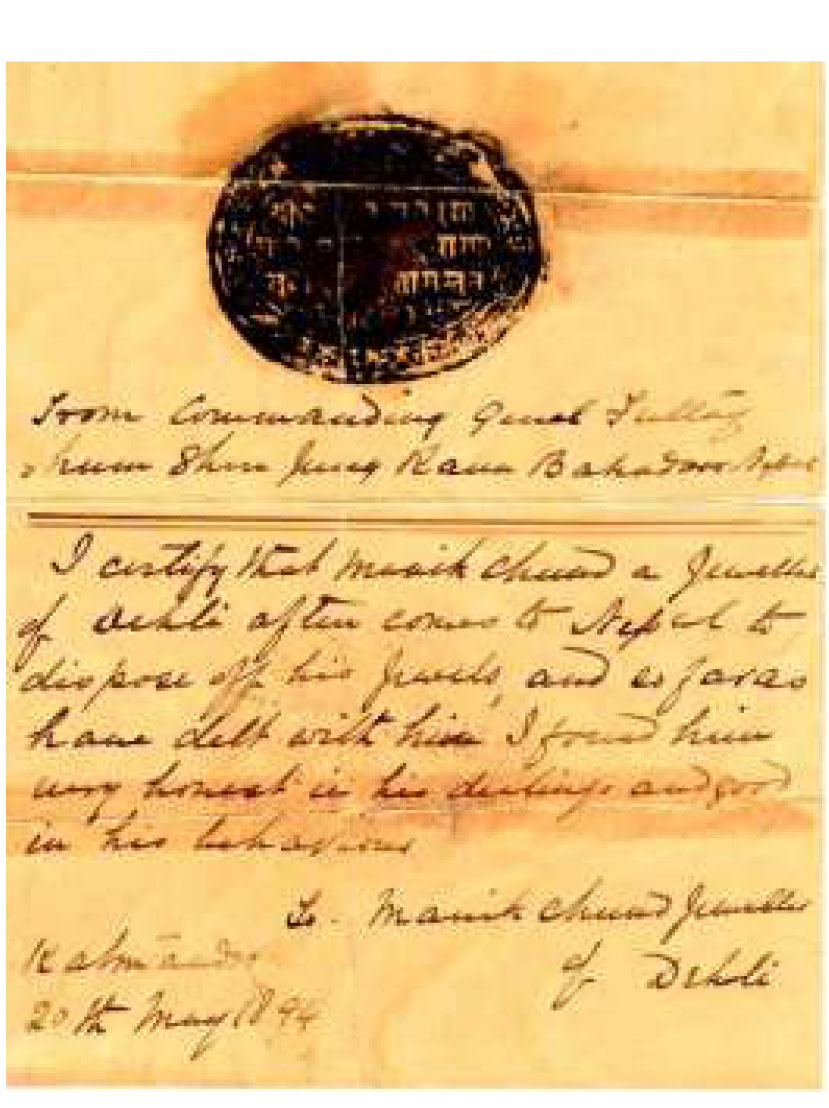 From Commanding Genel
Shum Sher Jung Rana Bahadoor Nepal
I certify that Manik Chund a Jeweller
of Dehli often comes to Nepal to
dispose off his Jewels, and as far as
have delt with him I found him
very honest in his dealings and good
in his behaviour
To. Manik Chund Jeweller
of Dehli
Katmandoo
20th May 1894